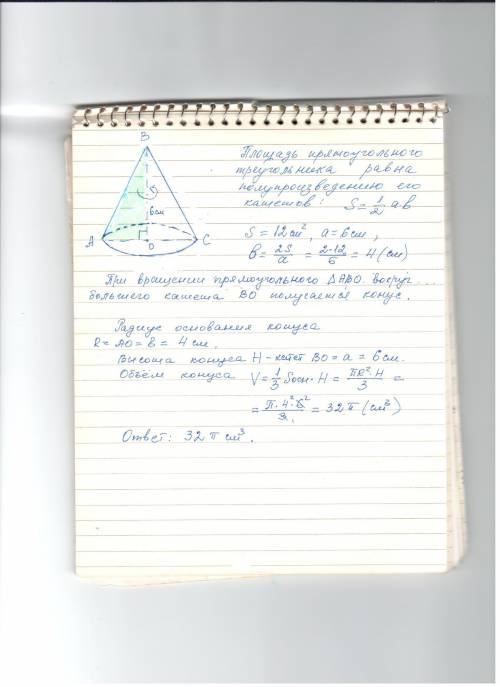 B
6см
A
O
C
Площадь прямоугольного
треугольника равна
полупроизведению его
катетов: S = 1/2 ab
S = 12 см², a = 6 см,
b = 2S/a = 2·12/6 = 4 (см)
При вращении прямоугольного ΔABO вокруг...
большего катета BO получается конус.
Радиус основания конуса
R = AO = b = 4 см.
Высота конуса H - катет BO = a = 6 см.
Объём конуса V = 1/3 Sосн · H = πR²·H/3 =
= π·4²·6²/3 = 32π (см³)
Ответ: 32π см³.